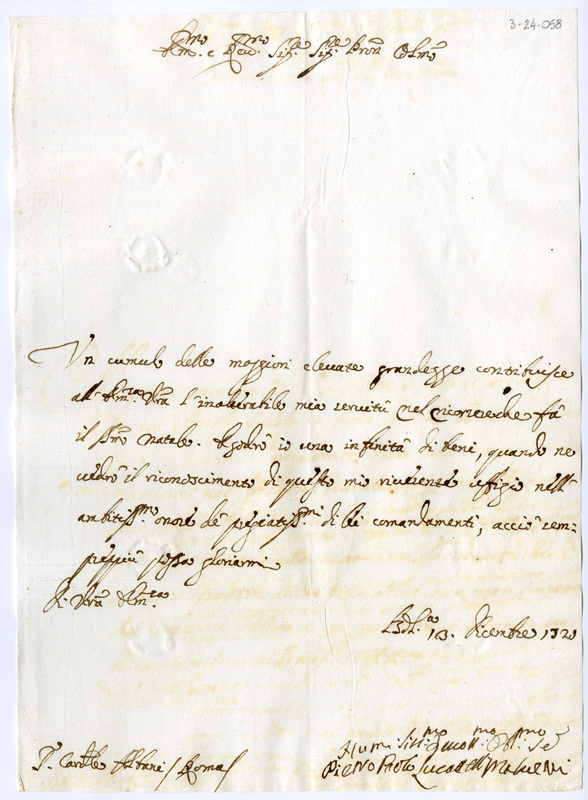 3-24-058
Em.mo e Rev.mo Sig.re Sig.re Pron Col.mo
Un cumulo delle maggiori elevate grandezze contribuisce
all' Em.za Vra l'inalterabile mia servitù nel ricorere che fà
il Smo natale. Godrò io una infinità di beni, quando ne
vedrò il riconoscimento di questo mio riverente uffizio nell'
ambitiss.mo onore de pregiatiss.mi di lei comandamenti, acciò sem-
preppiù possa gloriarmi
Di Vra Em.za
Bol.a 13. Dicembre 1720
Hum. Dev.mo Obl.mo Se
Pietro Paolo Lucatelli
S. Card.le Albani / Roma /